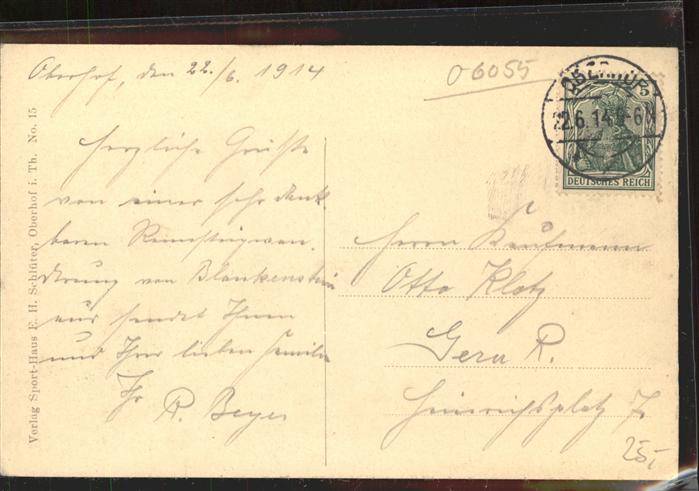 Oberhof, den 22./6. 1914
Herzliche Grüße
von einer sehr dank-
baren Rennsteigwan-
derung von Blankenstein
aus sendet Ihnen
und Ihrer lieben Familie
Ihr R. Beyer
06055
OBERHOF
22.6.14
5
DEUTSCHES REICH
Herrn Kaufmann
Otto Klotz
Gera R.
Heinrichsplatz 7.
25,-
Verlag Sport-Haus E. H. Schlüter, Oberhof i. Th. No. 15